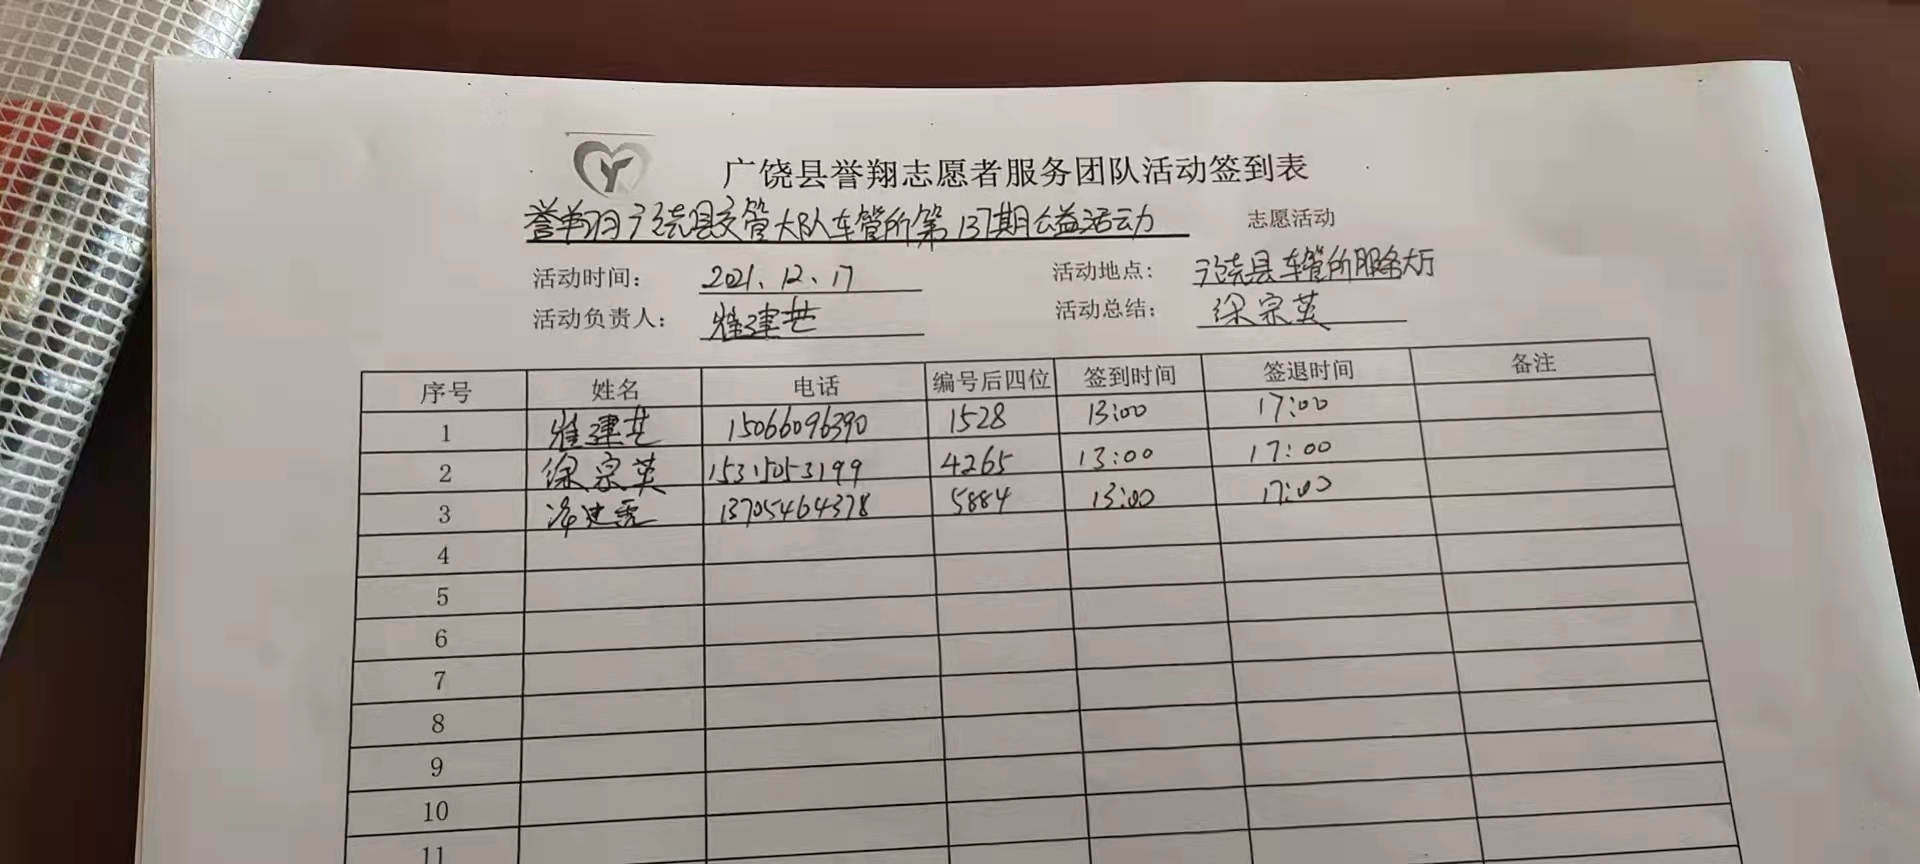 广饶县誉翔志愿者服务团队活动签到表
誉翔广饶县交管大队车管所第137期公益活动 志愿活动
活动时间： 2021.12.17 活动地点： 广饶县车管所服务大厅
活动负责人： 建芸 活动总结： 徐宗英
序号 姓名 电话 编号后四位 签到时间 签退时间 备注
1 建芸 15066096390 1528 13:00 17:00
2 徐宗英 15315053199 4265 13:00 17:00
3 13705464378 5884 13:00 17:00
4
5
6
7
8
9
10
11